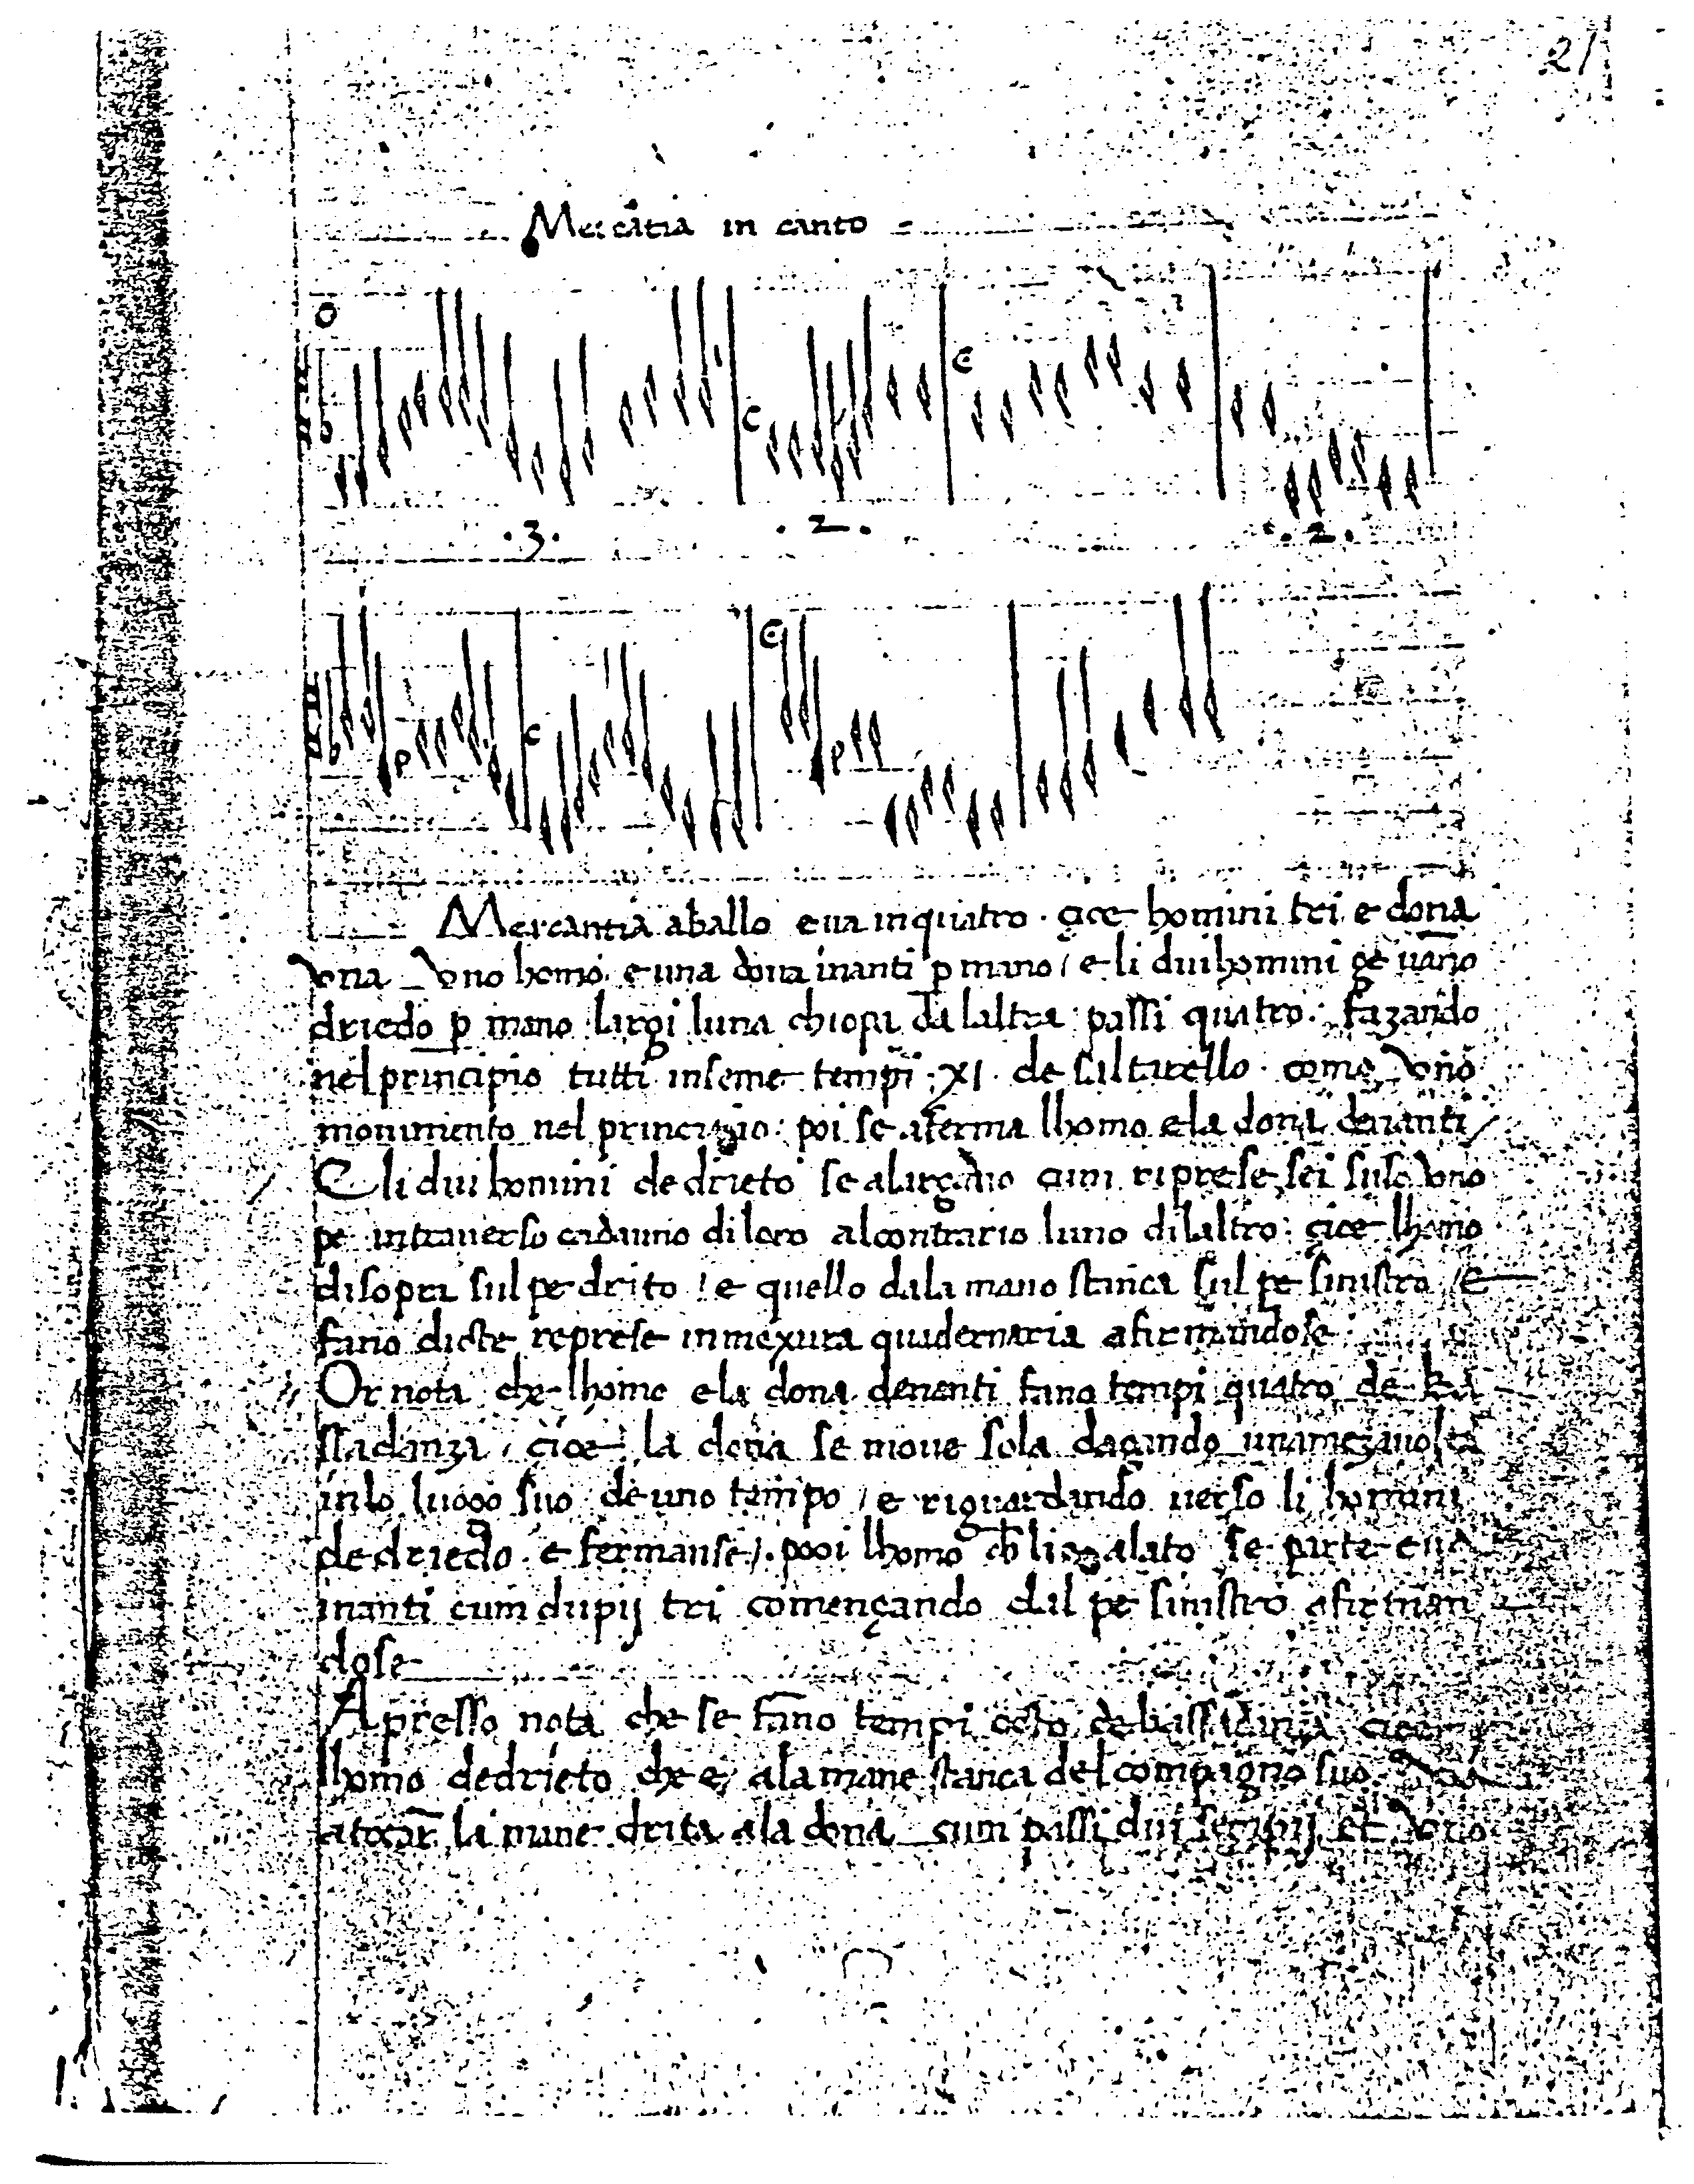 21
Mercãtia in canto
.3. .2. .2.
Mercantia aballo e va in quatro. çioe homini tri e dona
Vna Vno homo e una dona inanti p mano / e li dui homini ge uano
driedo p mano largi luna chiopa da laltra passi quatro. fazando
nel principio tutti inseme tempi .XI. de saltarello. como Vno
mouimento nel principio: poi se aferma lhomo e la dona dauanti /
E li dui homini dedrieto se alargano cum riprese sei suso Vno
pe intrauerso cadauno di loro al contrario luno dilaltro: çioe lhomo
disopra sul pe drito / e quello dala mano stanca sul pe sinistro / E
fano dicte represe in mexura quadernaria afirmandose
Or nota che lhomo e la dona denanti fano tempi quatro de ba
ssadanza, çioe la dona se moue sola dagando una meza uolta
in lo luogo suo de uno tempo / e riguardando uerso li homini
dedriedo. e fermanse /. pooi lhomo ch li alato se parte e ua
inanti cum dupij tri començando dal pe sinistro afirman
dose
Apresso nota che se fano tempi octo de bassadanza cioe
lhomo dedrieto che e ala mane stanca del compagno suo. Va
a tocar la mane drita a la dona cum passi dui sempij et Vno